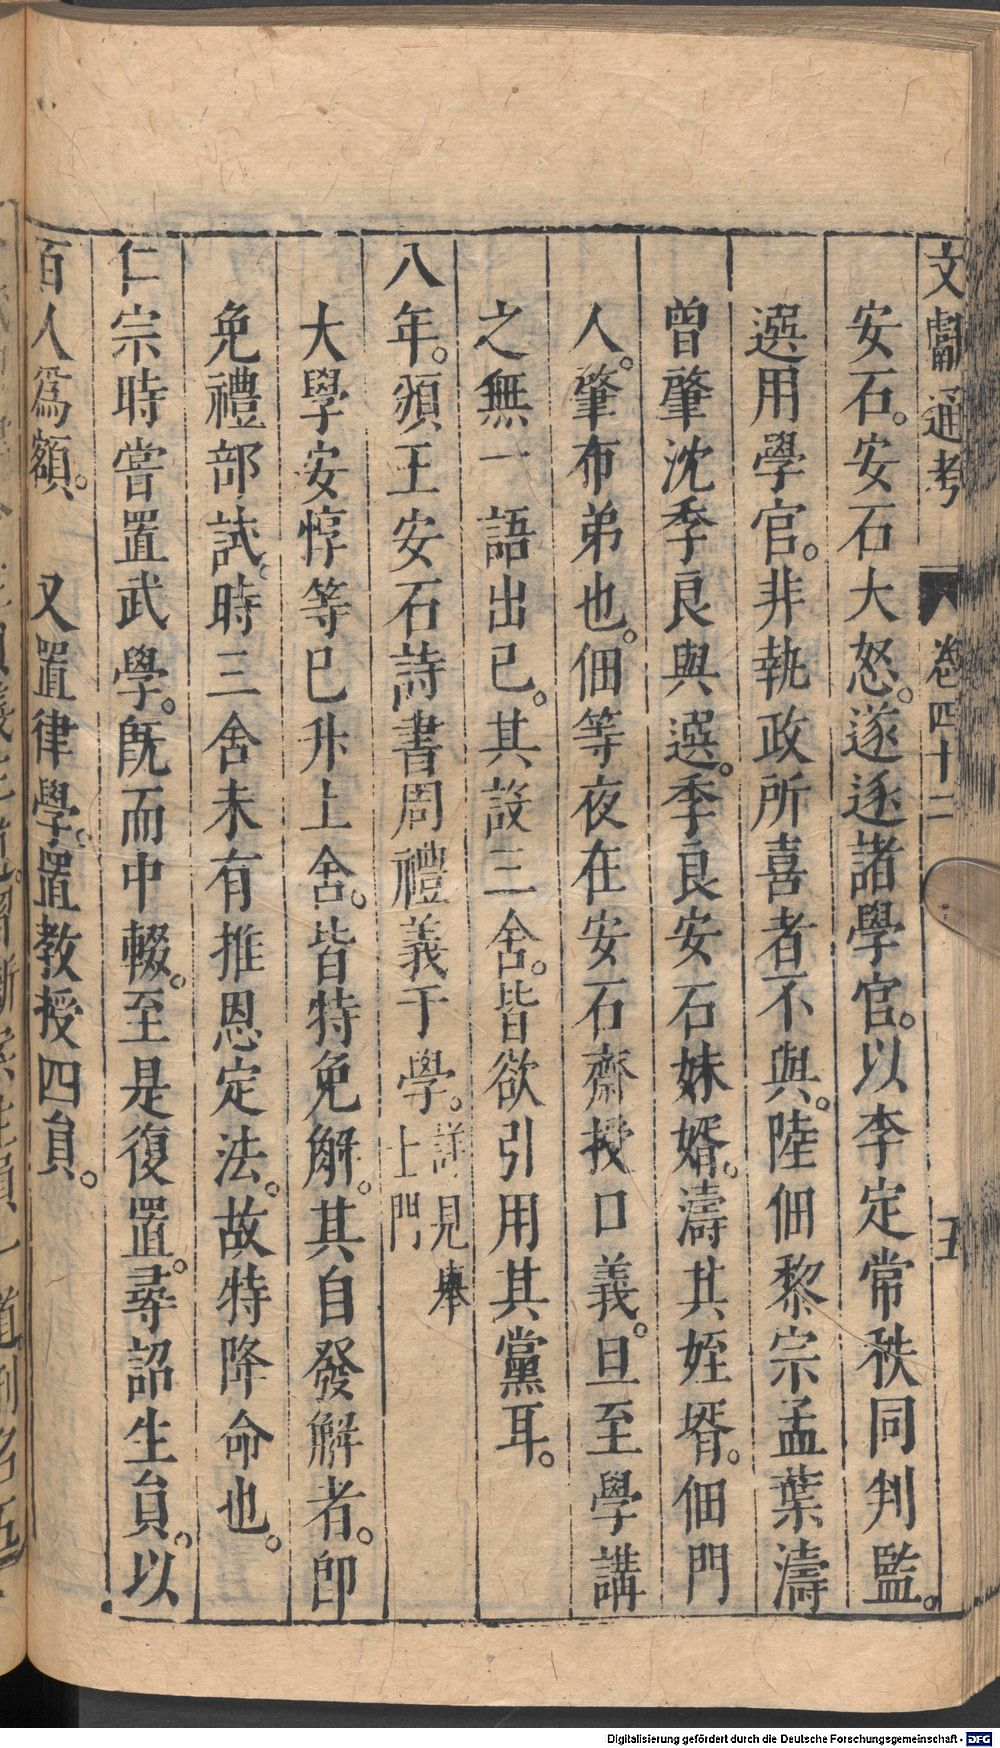 文獻通考 卷四十二 五
安石。安石大怒。遂逐諸學官。以李定常秩同判監。
選用學官。非執政所喜者不與。陸佃黎宗孟葉濤
曾肇沈季良與選。季良安石妹婿。濤其姪壻。佃門
人。肇布弟也。佃等夜在安石齋授口義。旦至學講
之無一語出已。其設三舍。皆欲引用其黨耳。
八年。頒王安石詩書周禮義于學。詳見舉
士門
大學安惇等已升上舍。皆特免解。其自發解者。即
免禮部試。時三舍未有推恩定法。故特降命也。
仁宗時嘗置武學。旣而中輟。至是復置。尋詔生員。以
百人爲額。 又置律學。置教授四員。
Digitalisierung gefördert durch die Deutsche Forschungsgemeinschaft - DFG